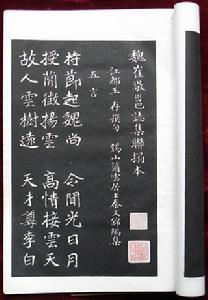 魏崔敬邕誌集聯搨本
江都王存撰句 錫山蕭雲居士秦文錦編集
五言
持節起魏尚 令聞光日月
授簡徵揚雲 高情接雲天
故人雲樹遠 天才尊李白